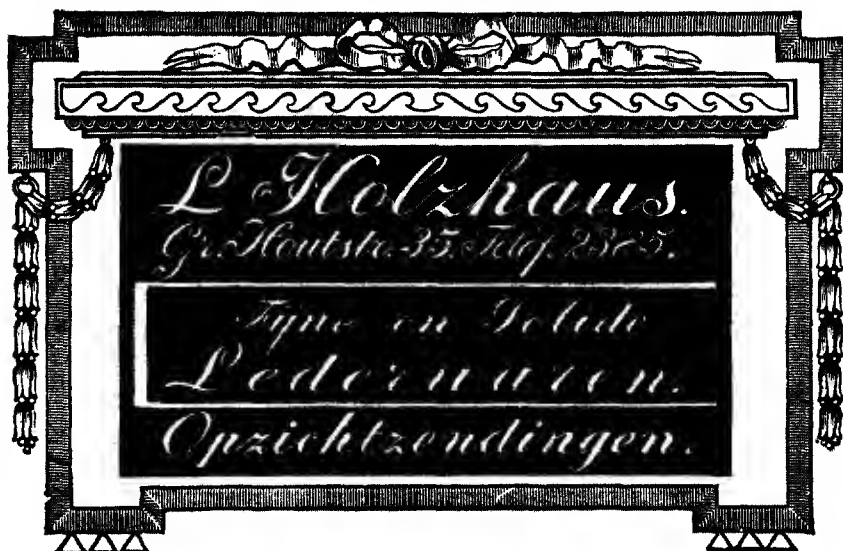 L Holzhaus.
Gr. Houtstr. 35. Telef.
Fijne en Solide
Lederwaren.
Opzichtzendingen.